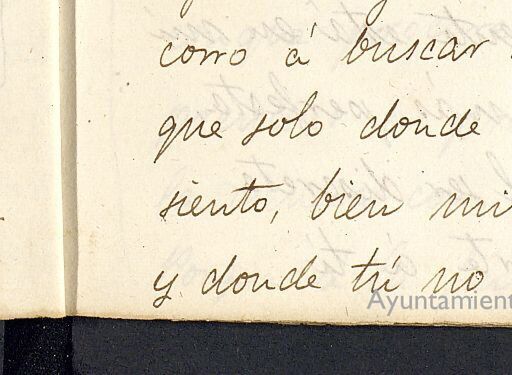 corro á buscar
que solo donde
siento, bien mi
y donde tú no
Ayuntamient